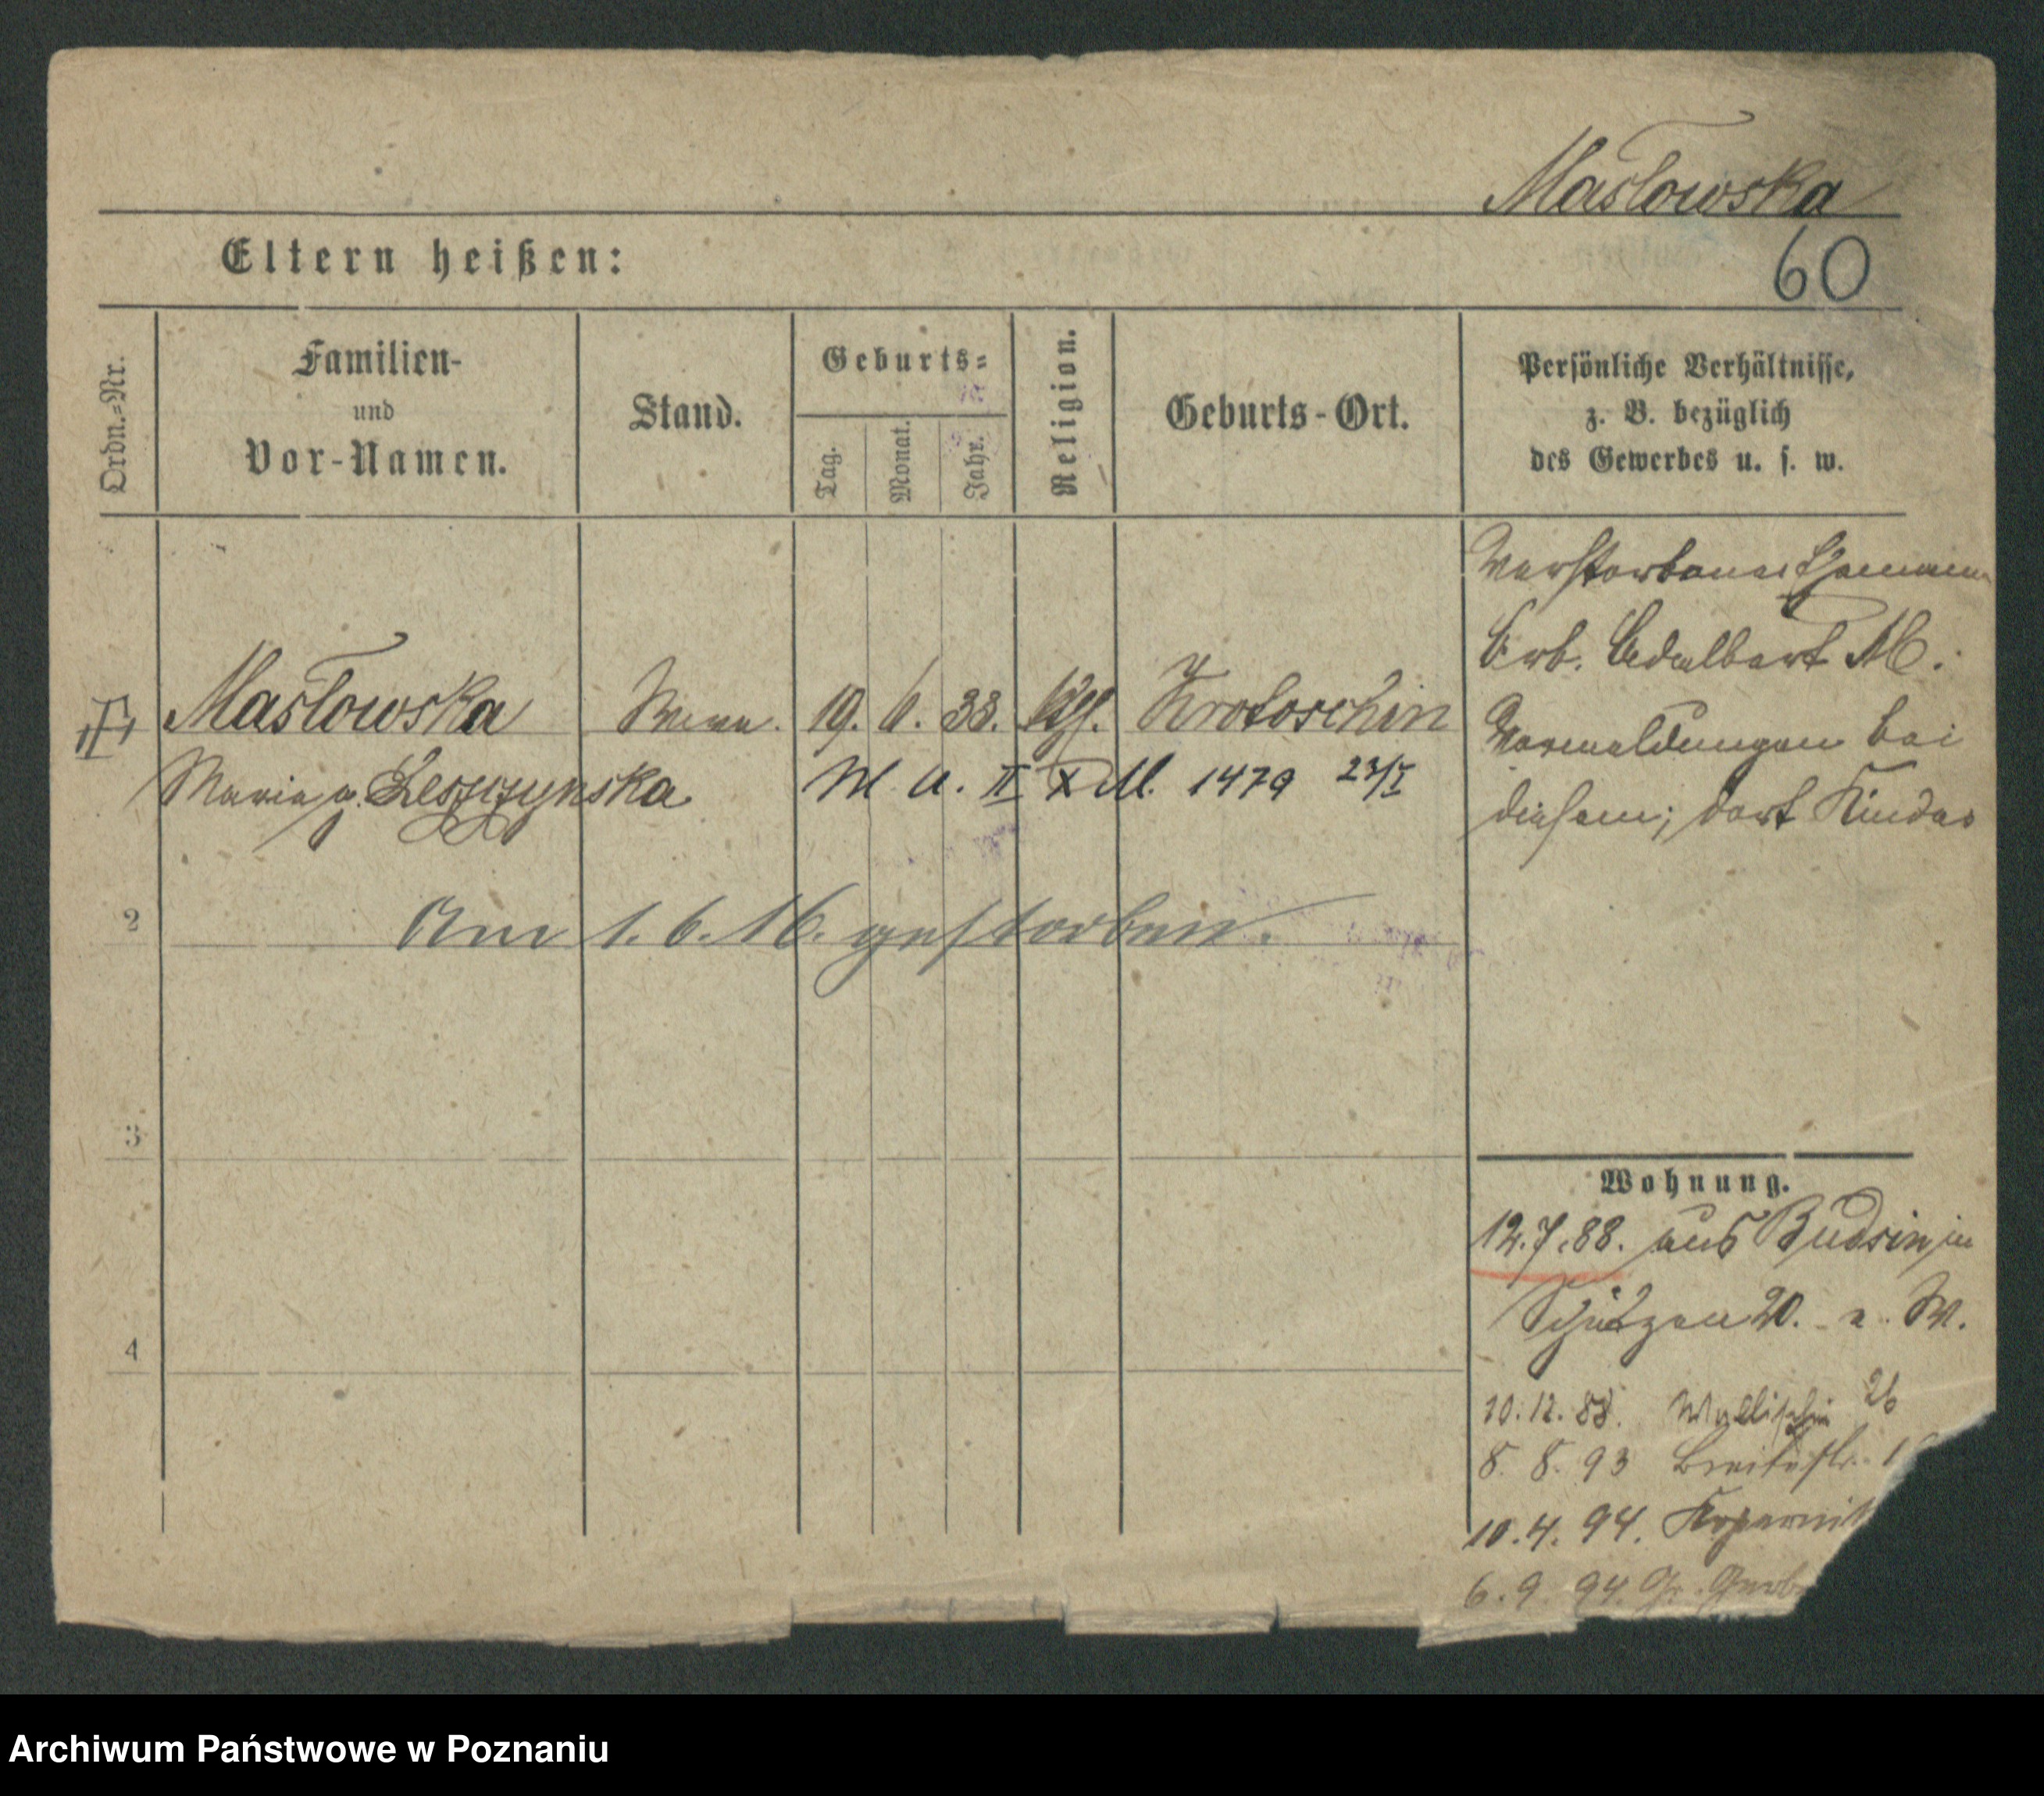 Masłowska
Eltern heißen:
60
Ordn.-Nr.
Familien-
und
Vor-Namen.
Stand.
Geburts-
Tag.
Monat.
Jahr.
Religion.
Geburts-Ort.
Persönliche Verhältnisse,
z. B. bezüglich
des Gewerbes u. s. w.
Verstorbener Ehemann
Arb. Adalbert M.
Vormeldungen bei
diesem; dort Kinder
Masłowska
Wwe.
19. 6. 33. kth. Krotoschin
Maria g. Leszczynska
M. A. II X M. 1479 23/I
2
Am 1. 6. 16. gestorben.
3
4
Wohnung.
12.7.88. aus Budsin in
Schützen 20. W.
10.12.88. Wallischei 26
8. 8. 93 Breitestr. 1
10.4. 94. Kopernik
6. 9. 94. Gr. Gerb
Archiwum Państwowe w Poznaniu